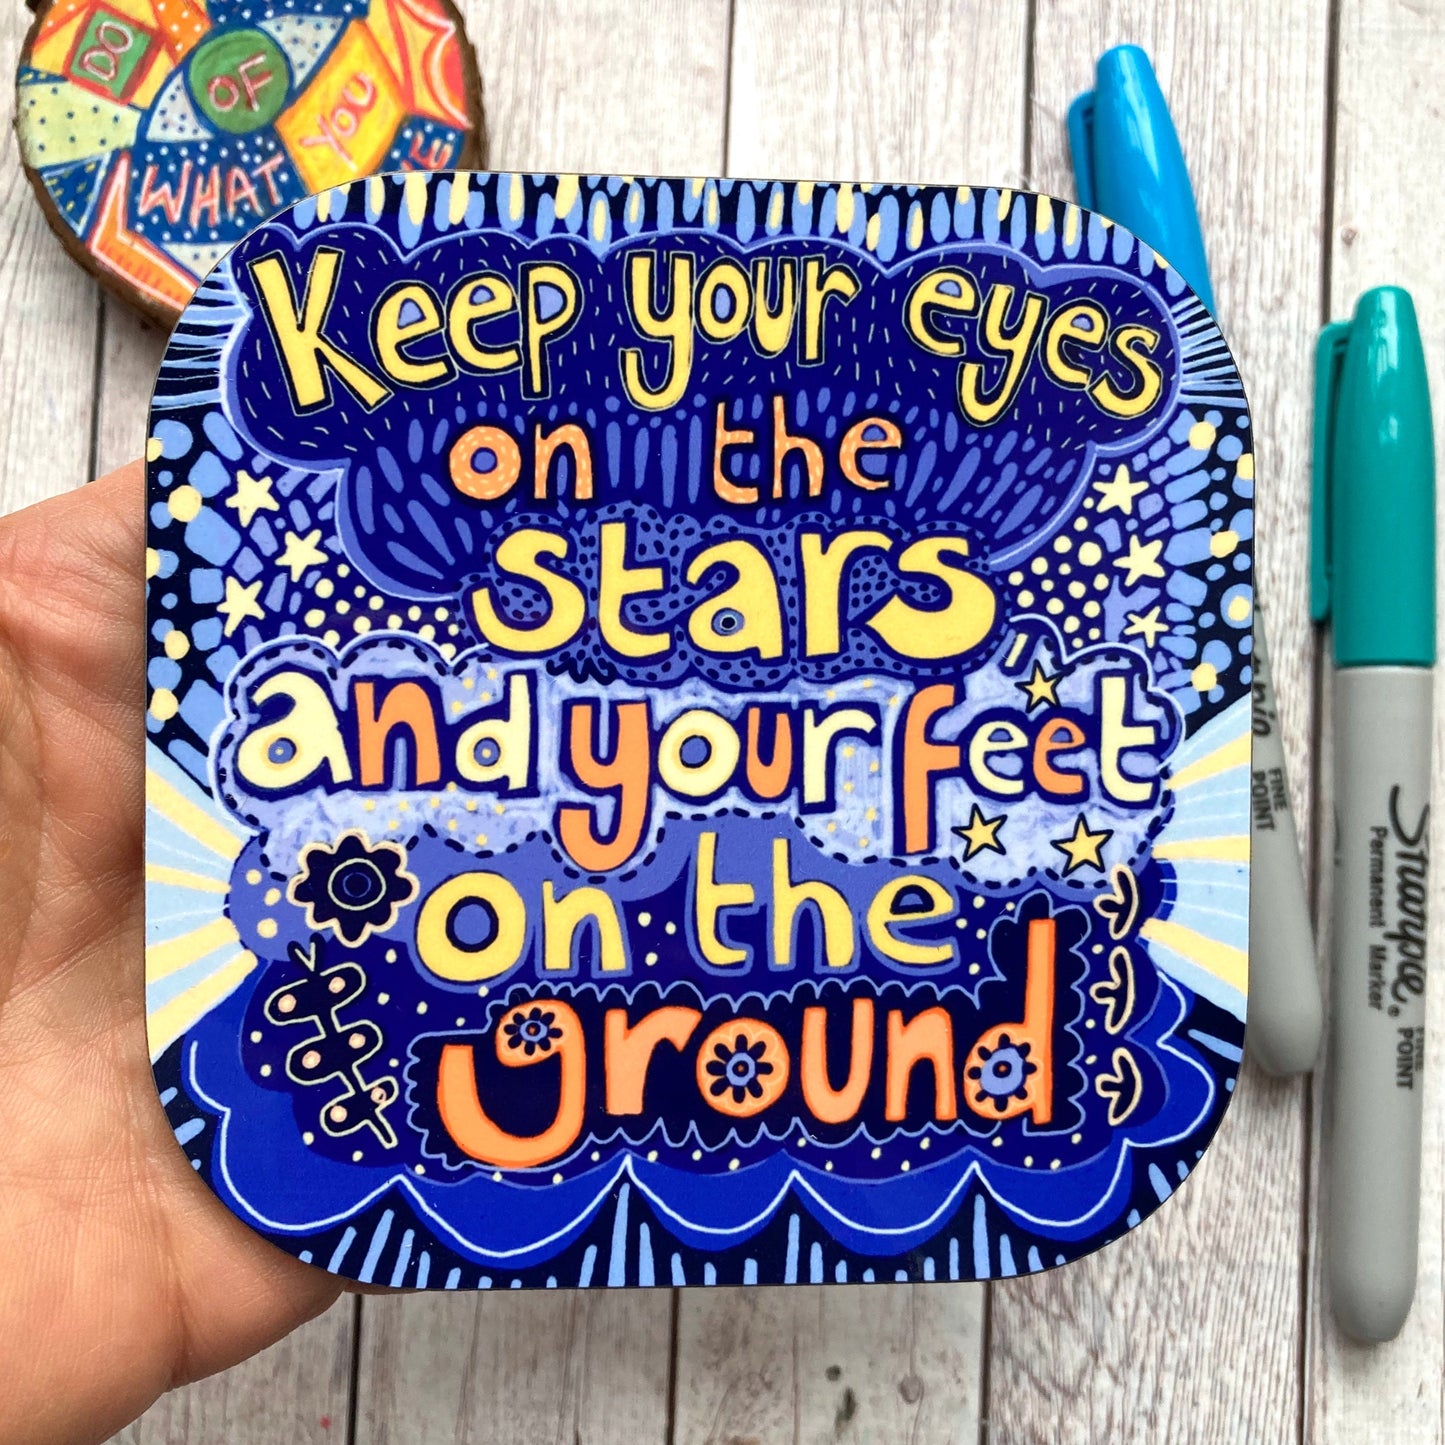 DO
OF
YOU
WHAT
Keep your eyes
on the
stars
and your feet
on the
ground
FINE
POINT
Sharpie®
Permanent Marker
FINE
POINT